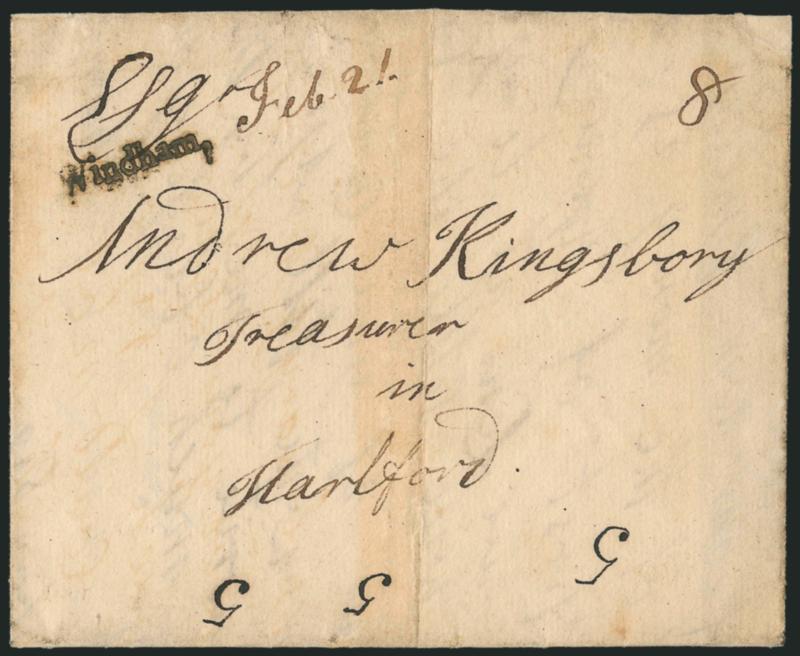 Esqr Feb 21. 8
Windham,
Andrew Kingsbory
Treasurer
in
Hartford.
5 5 5